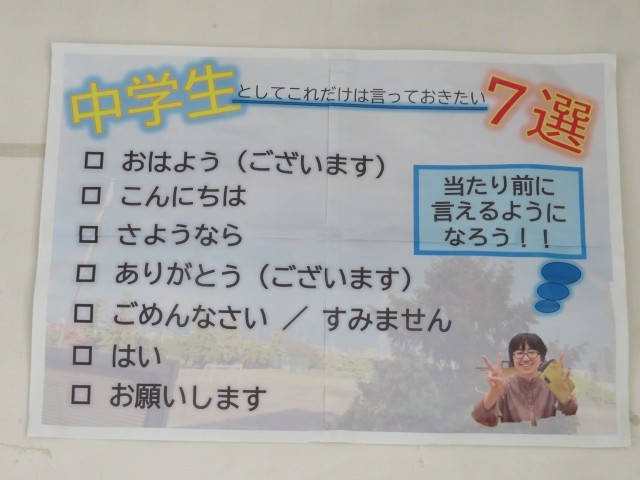 中学生としてこれだけは言っておきたい7選
□ おはよう（ございます）
□ こんにちは
□ さようなら
□ ありがとう（ございます）
□ ごめんなさい ／ すみません
□ はい
□ お願いします
当たり前に
言えるように
なろう！！